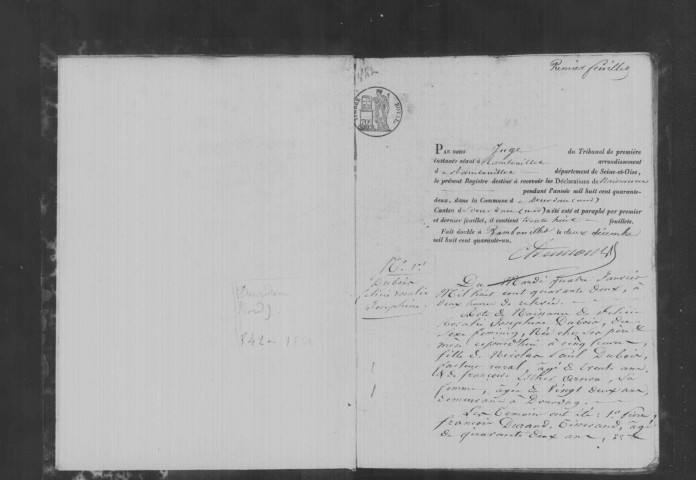 Premier feuillet
PAR nous Juge du Tribunal de première
instance séant à Rambouillet arrondissement
de Rambouillet département de Seine-et-Oise,
le présent Registre destiné à recevoir les Déclarations de Naissances
pendant l'année mil huit cent quarante-
deux, dans la Commune de Dourdan (nord)
Canton de Dourdan (nord) a été coté et paraphé par premier
et dernier feuillet, il contient trente huit feuillets.
Fait double à Rambouillet le deux décembre
mil huit cent quarante-un.
N° 1er
Dubois
Joséphine
Du Mardi quatre Janvier
Mil huit cent quarante deux, à
deux heures de relevée.
Acte de Naissance de
Joséphine Dubois, du
Sexe féminin, Née chez ses père et
mère aujourd'hui à cinq heures,
fille de Nicolas Paul Dubois,
facteur rural, âgé de trente ans
& de françoise Esther, Sa
femme, âgée de Vingt deux ans,
demeurans à Dourdan.
Les Témoins ont été : 1°
françois Durand, Tisserand, âgé
de quarante deux ans,